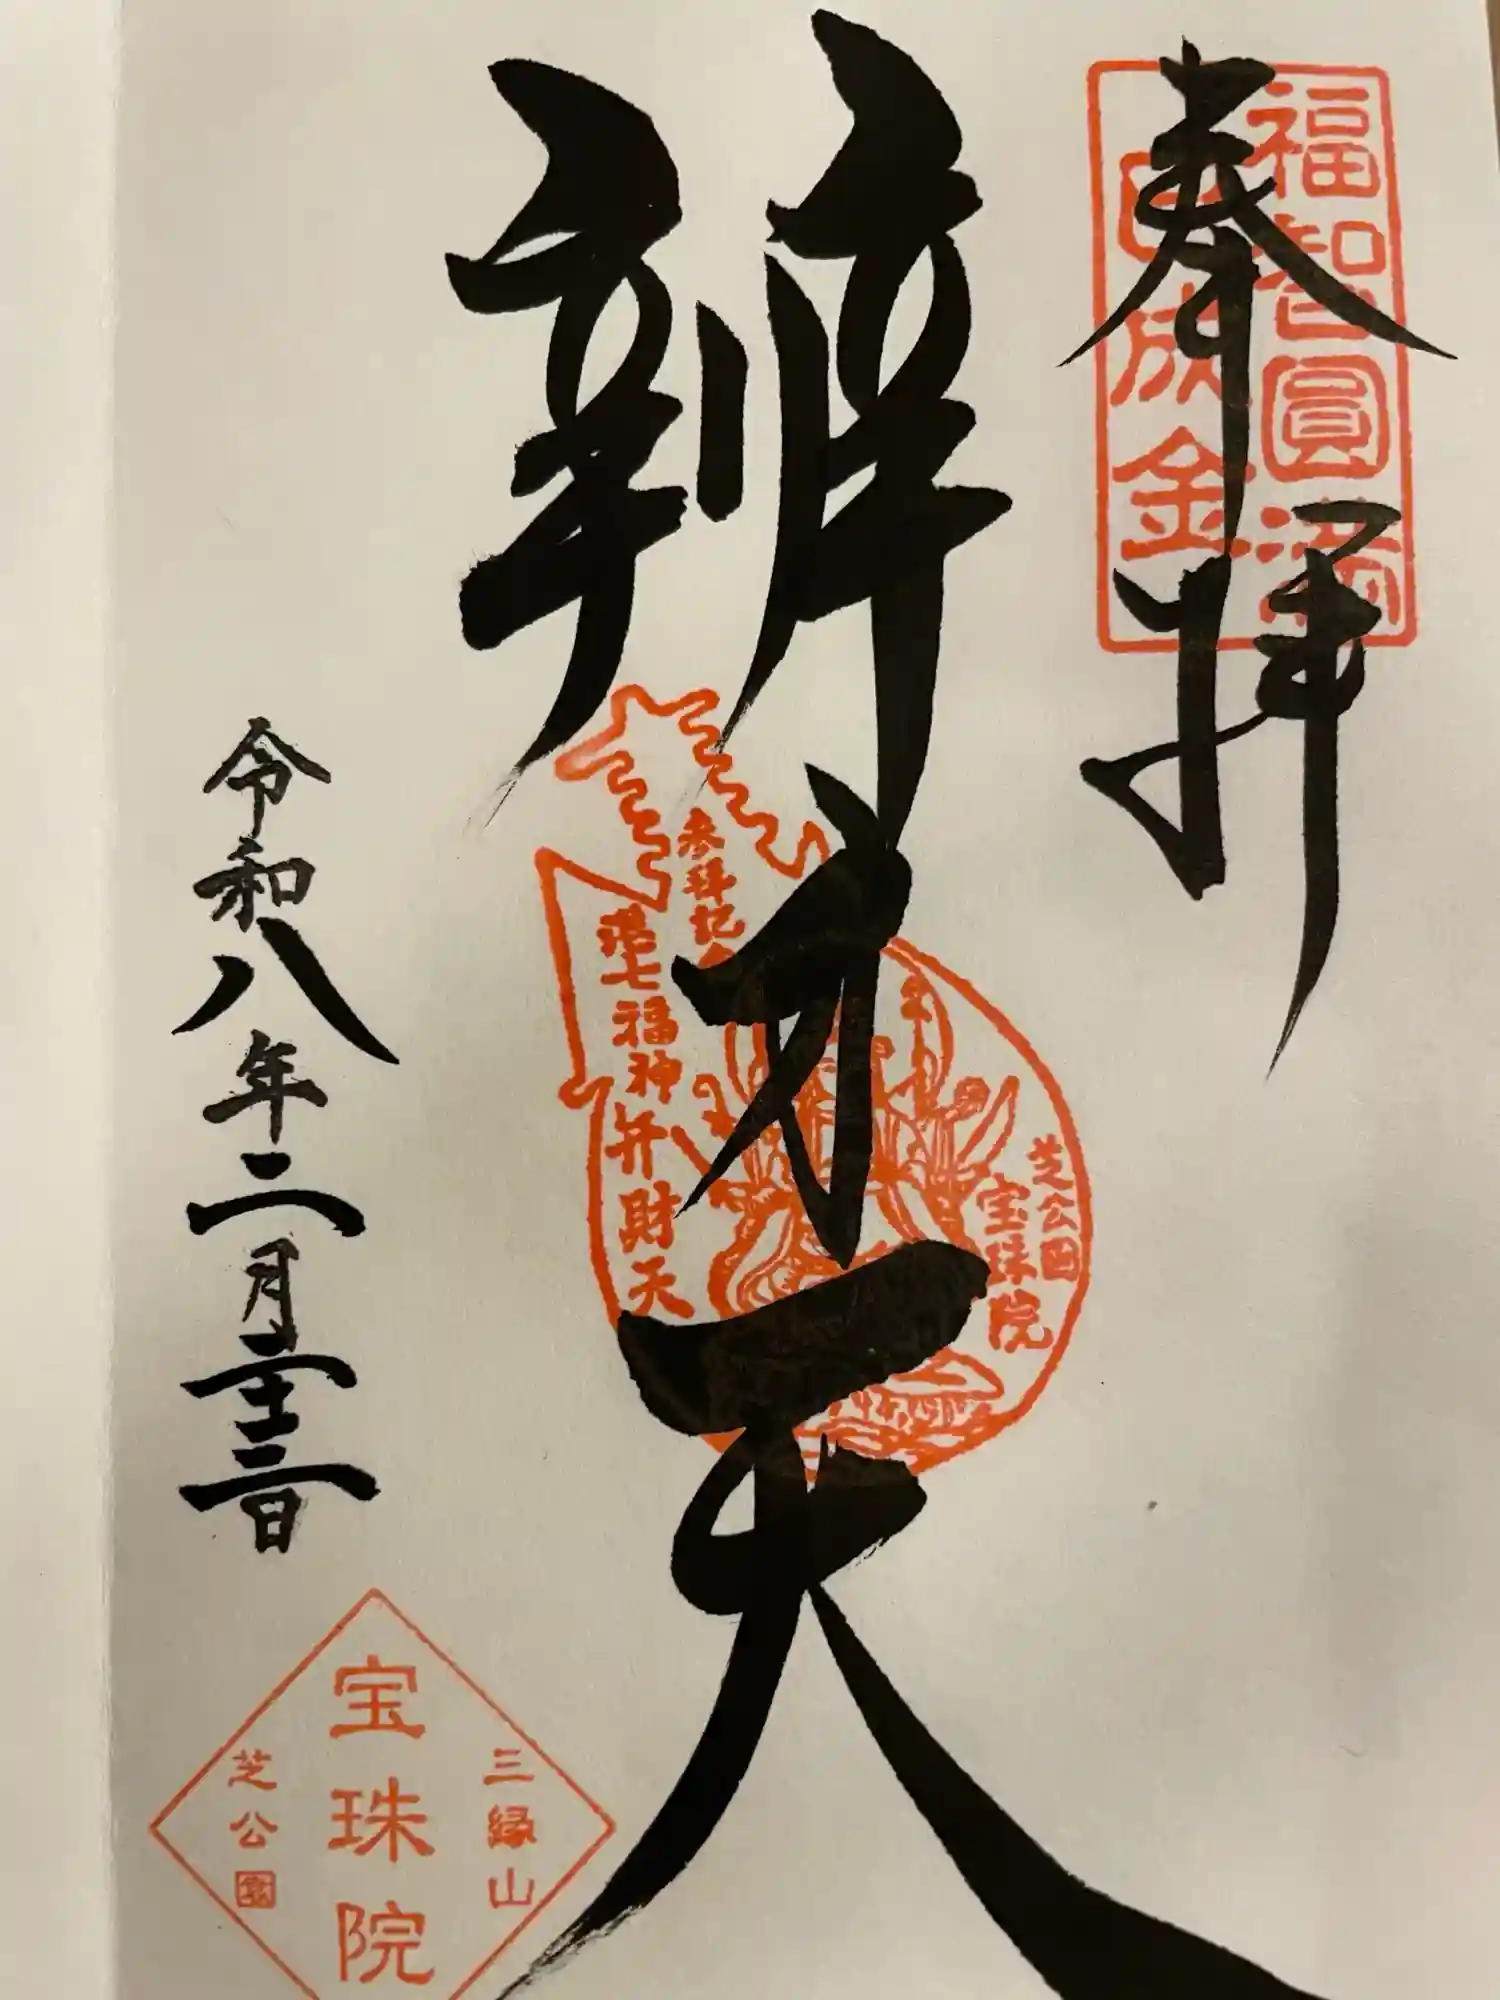 奉拝
福智圓満
円成金
辨才天
参拝記念
港七福神弁財天
芝公園
宝珠院
令和八年二月二十三日
三縁山
宝珠院
芝公園